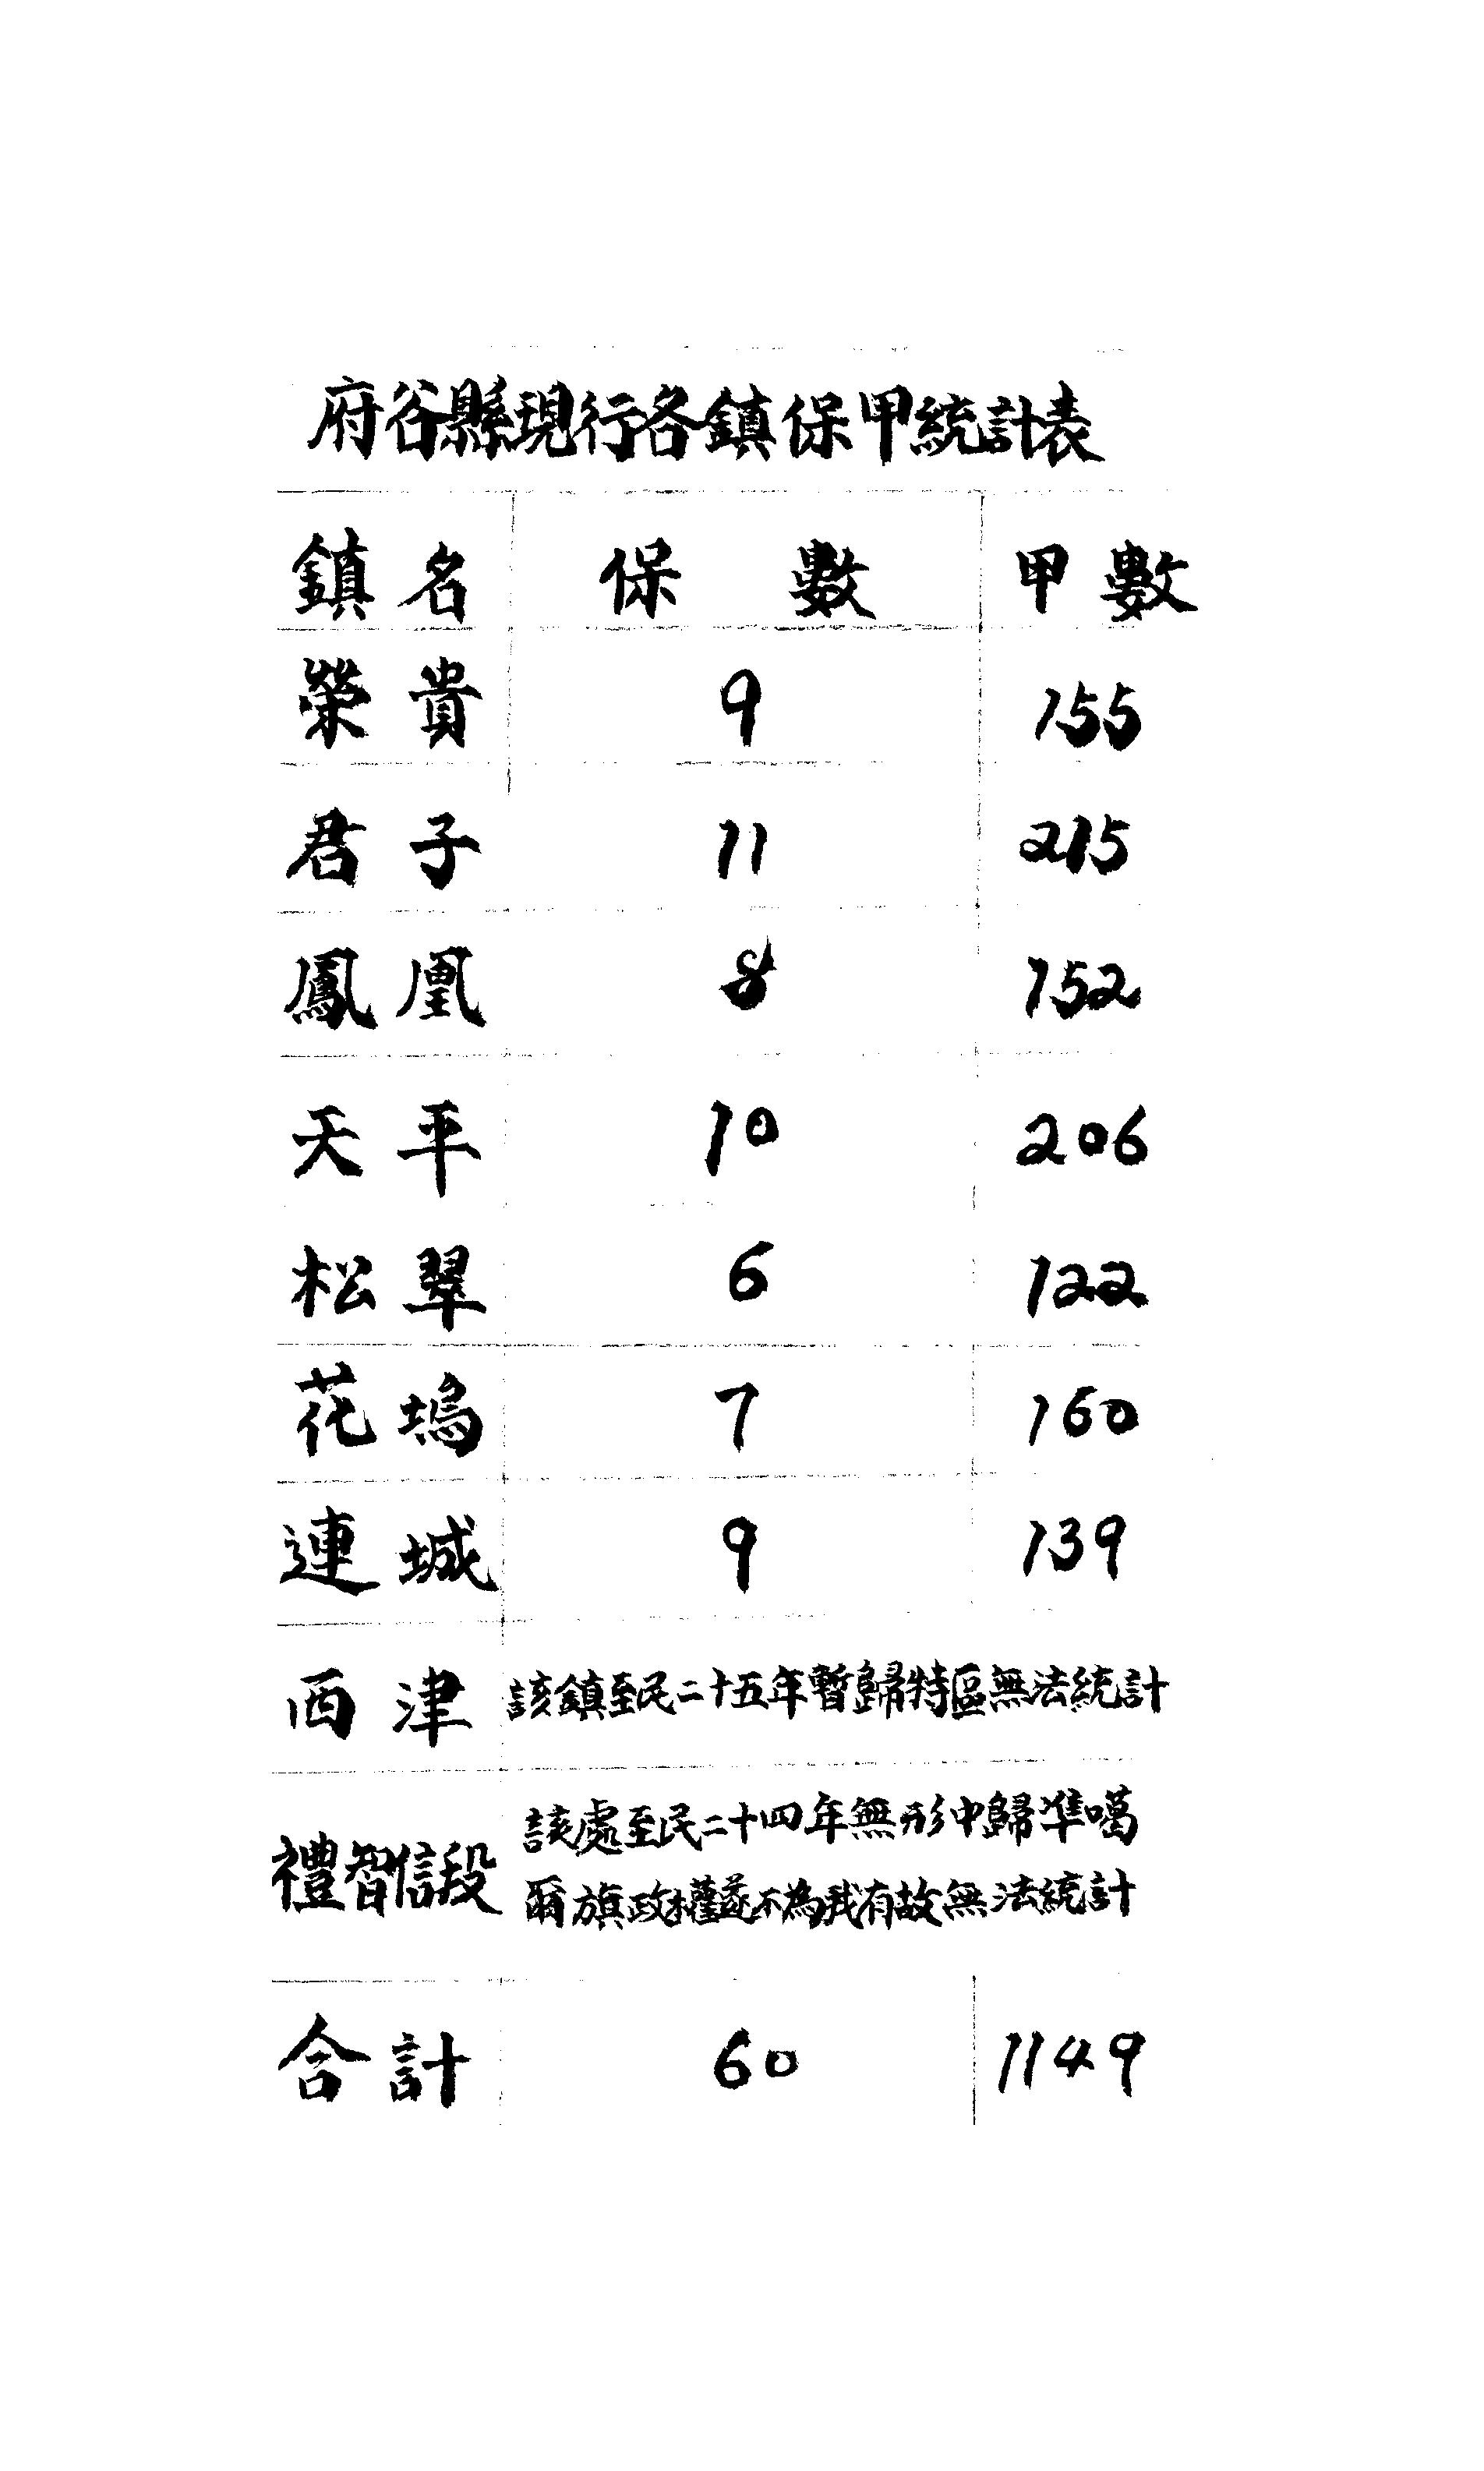 府谷縣現行各鎮保甲統計表
鎮名 保數 甲數
榮貴 9 155
君子 11 215
鳳凰 8 152
天平 10 206
松翠 6 122
花塢 7 160
連城 9 139
西津 該鎮至民二十五年暫歸特區無法統計
禮智信段 該處至民二十四年無形中歸準噶
爾旗政權遂不為我有故無法統計
合計 60 1149